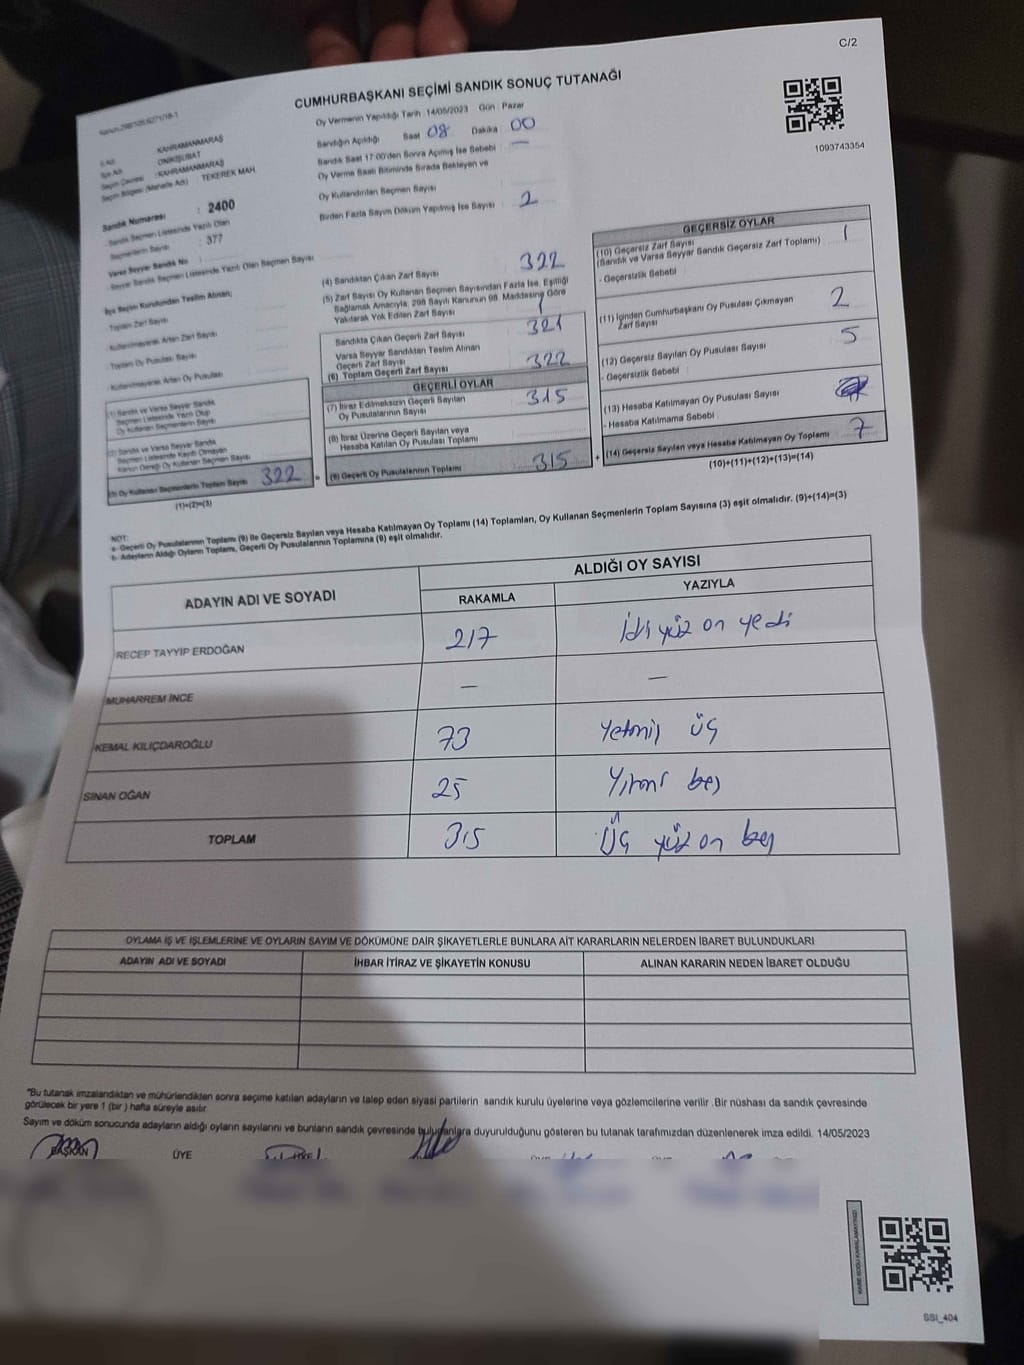 C/2
CUMHURBAŞKANI SEÇİMİ SANDIK SONUÇ TUTANAĞI
1093743354
Oy Vermenin Yapıldığı Tarih 14/05/2023 Gün : Pazar
Sandığın Açıldığı Saat 08 Dakika : 00
Sandık Saat 17:00'den Sonra Açılmış İse Sebebi : —
Oy Verme Saati Bitiminde Sırada Bekleyen ve
Oy Kullandırılan Seçmen Sayısı
Birden Fazla Sayım Döküm Yapılmış İse Sayısı : 2
İli Adı : KAHRAMANMARAŞ
İlçe Adı : ONİKİŞUBAT
Seçim Çevresi : KAHRAMANMARAŞ
Seçim Bölgesi (Mahalle Adı) : TEKEREK MAH.
Sandık Numarası : 2400
- Sandık Seçmen Listesinde Yazılı Olan
Seçmenlerin Sayısı : 377
Varsa Seyyar Sandık No
- Seyyar Sandık Seçmen Listesinde Yazılı Olan Seçmen Sayısı
İlçe Seçim Kurulundan Teslim Alınan;
- Toplam Zarf Sayısı
- Kullanılmayarak Artan Zarf Sayısı
- Toplam Oy Pusulası Sayısı
- Kullanılmayarak Artan Oy Pusulası
(1) Sandık ve Varsa Seyyar Sandık
Seçmen Listesinde Yazılı Olup
Oy Kullanan Seçmenlerin Sayısı
(2) Sandık ve Varsa Seyyar Sandık
Seçmen Listesinde Kayıtlı Olmayan
Kanun Gereği Oy Kullanan Seçmen Sayısı
(3) Oy Kullanan Seçmenlerin Toplam Sayısı 322
(1)+(2)=(3)
(4) Sandıktan Çıkan Zarf Sayısı 322
(5) Zarf Sayısı Oy Kullanan Seçmen Sayısından Fazla İse, Eşitliği
Sağlamak Amacıyla, 298 Sayılı Kanunun 98. Maddesine Göre
Yakılarak Yok Edilen Zarf Sayısı 1
Sandıkta Çıkan Geçerli Zarf Sayısı 321
Varsa Seyyar Sandıktan Teslim Alınan
Geçerli Zarf Sayısı
(6) Toplam Geçerli Zarf Sayısı 322
GEÇERLİ OYLAR
(7) İtiraz Edilmeksizin Geçerli Sayılan
Oy Pusulalarının Sayısı 315
(8) İtiraz Üzerine Geçerli Sayılan veya
Hesaba Katılan Oy Pusulası Toplamı
(9) Geçerli Oy Pusulalarının Toplamı 315
GEÇERSİZ OYLAR
(10) Geçersiz Zarf Sayısı 1
(Sandık ve Varsa Seyyar Sandık Geçersiz Zarf Toplamı)
- Geçersizlik Sebebi
(11) İçinden Cumhurbaşkanı Oy Pusulası Çıkmayan
Zarf Sayısı 2
(12) Geçersiz Sayılan Oy Pusulası Sayısı 5
- Geçersizlik Sebebi
(13) Hesaba Katılmayan Oy Pusulası Sayısı
- Hesaba Katılmama Sebebi :
(14) Geçersiz Sayılan veya Hesaba Katılmayan Oy Toplamı 7
(10)+(11)+(12)+(13)=(14)
NOT:
a- Geçerli Oy Pusulalarının Toplamı (9) ile Geçersiz Sayılan veya Hesaba Katılmayan Oy Toplamı (14) Toplamları, Oy Kullanan Seçmenlerin Toplam Sayısına (3) eşit olmalıdır. (9)+(14)=(3)
b- Adayların Aldığı Oyların Toplamı, Geçerli Oy Pusulalarının Toplamına (9) eşit olmalıdır.
ADAYIN ADI VE SOYADI ALDIĞI OY SAYISI
RAKAMLA YAZIYLA
RECEP TAYYİP ERDOĞAN 217 İki yüz on yedi
MUHARREM İNCE — —
KEMAL KILIÇDAROĞLU 73 Yetmiş üç
SİNAN OĞAN 25 Yirmi beş
TOPLAM 315 Üç yüz on beş
OYLAMA İŞ VE İŞLEMLERİNE VE OYLARIN SAYIM VE DÖKÜMÜNE DAİR ŞİKAYETLERLE BUNLARA AİT KARARLARIN NELERDEN İBARET BULUNDUKLARI
ADAYIN ADI VE SOYADI İHBAR İTİRAZ VE ŞİKAYETİN KONUSU ALINAN KARARIN NEDEN İBARET OLDUĞU
*Bu tutanak imzalandıktan ve mühürlendikten sonra seçime katılan adayların ve talep eden siyasi partilerin sandık kurulu üyelerine veya gözlemcilerine verilir .Bir nüshası da sandık çevresinde
görülecek bir yere 1 (bir ) hafta süreyle asılır.
Sayım ve döküm sonucunda adayların aldığı oyların sayılarını ve bunların sandık çevresinde bulunanlara duyurulduğunu gösteren bu tutanak tarafımızdan düzenlenerek imza edildi. 14/05/2023
BAŞKAN ÜYE
SSI_404